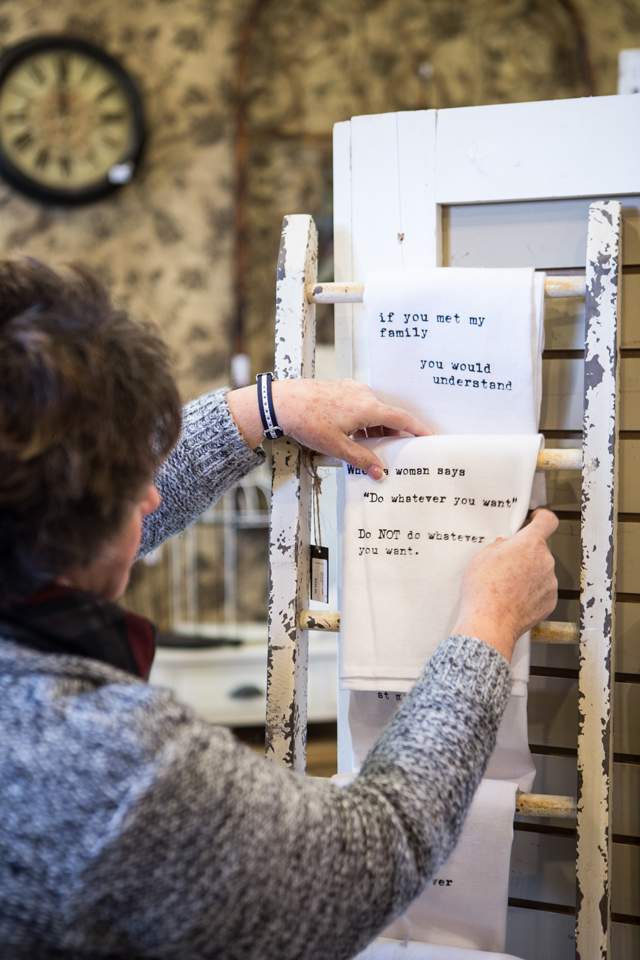 if you met my
family
you would
understand
When a woman says
“Do whatever you want”
Do NOT do whatever
you want.
at m
ver